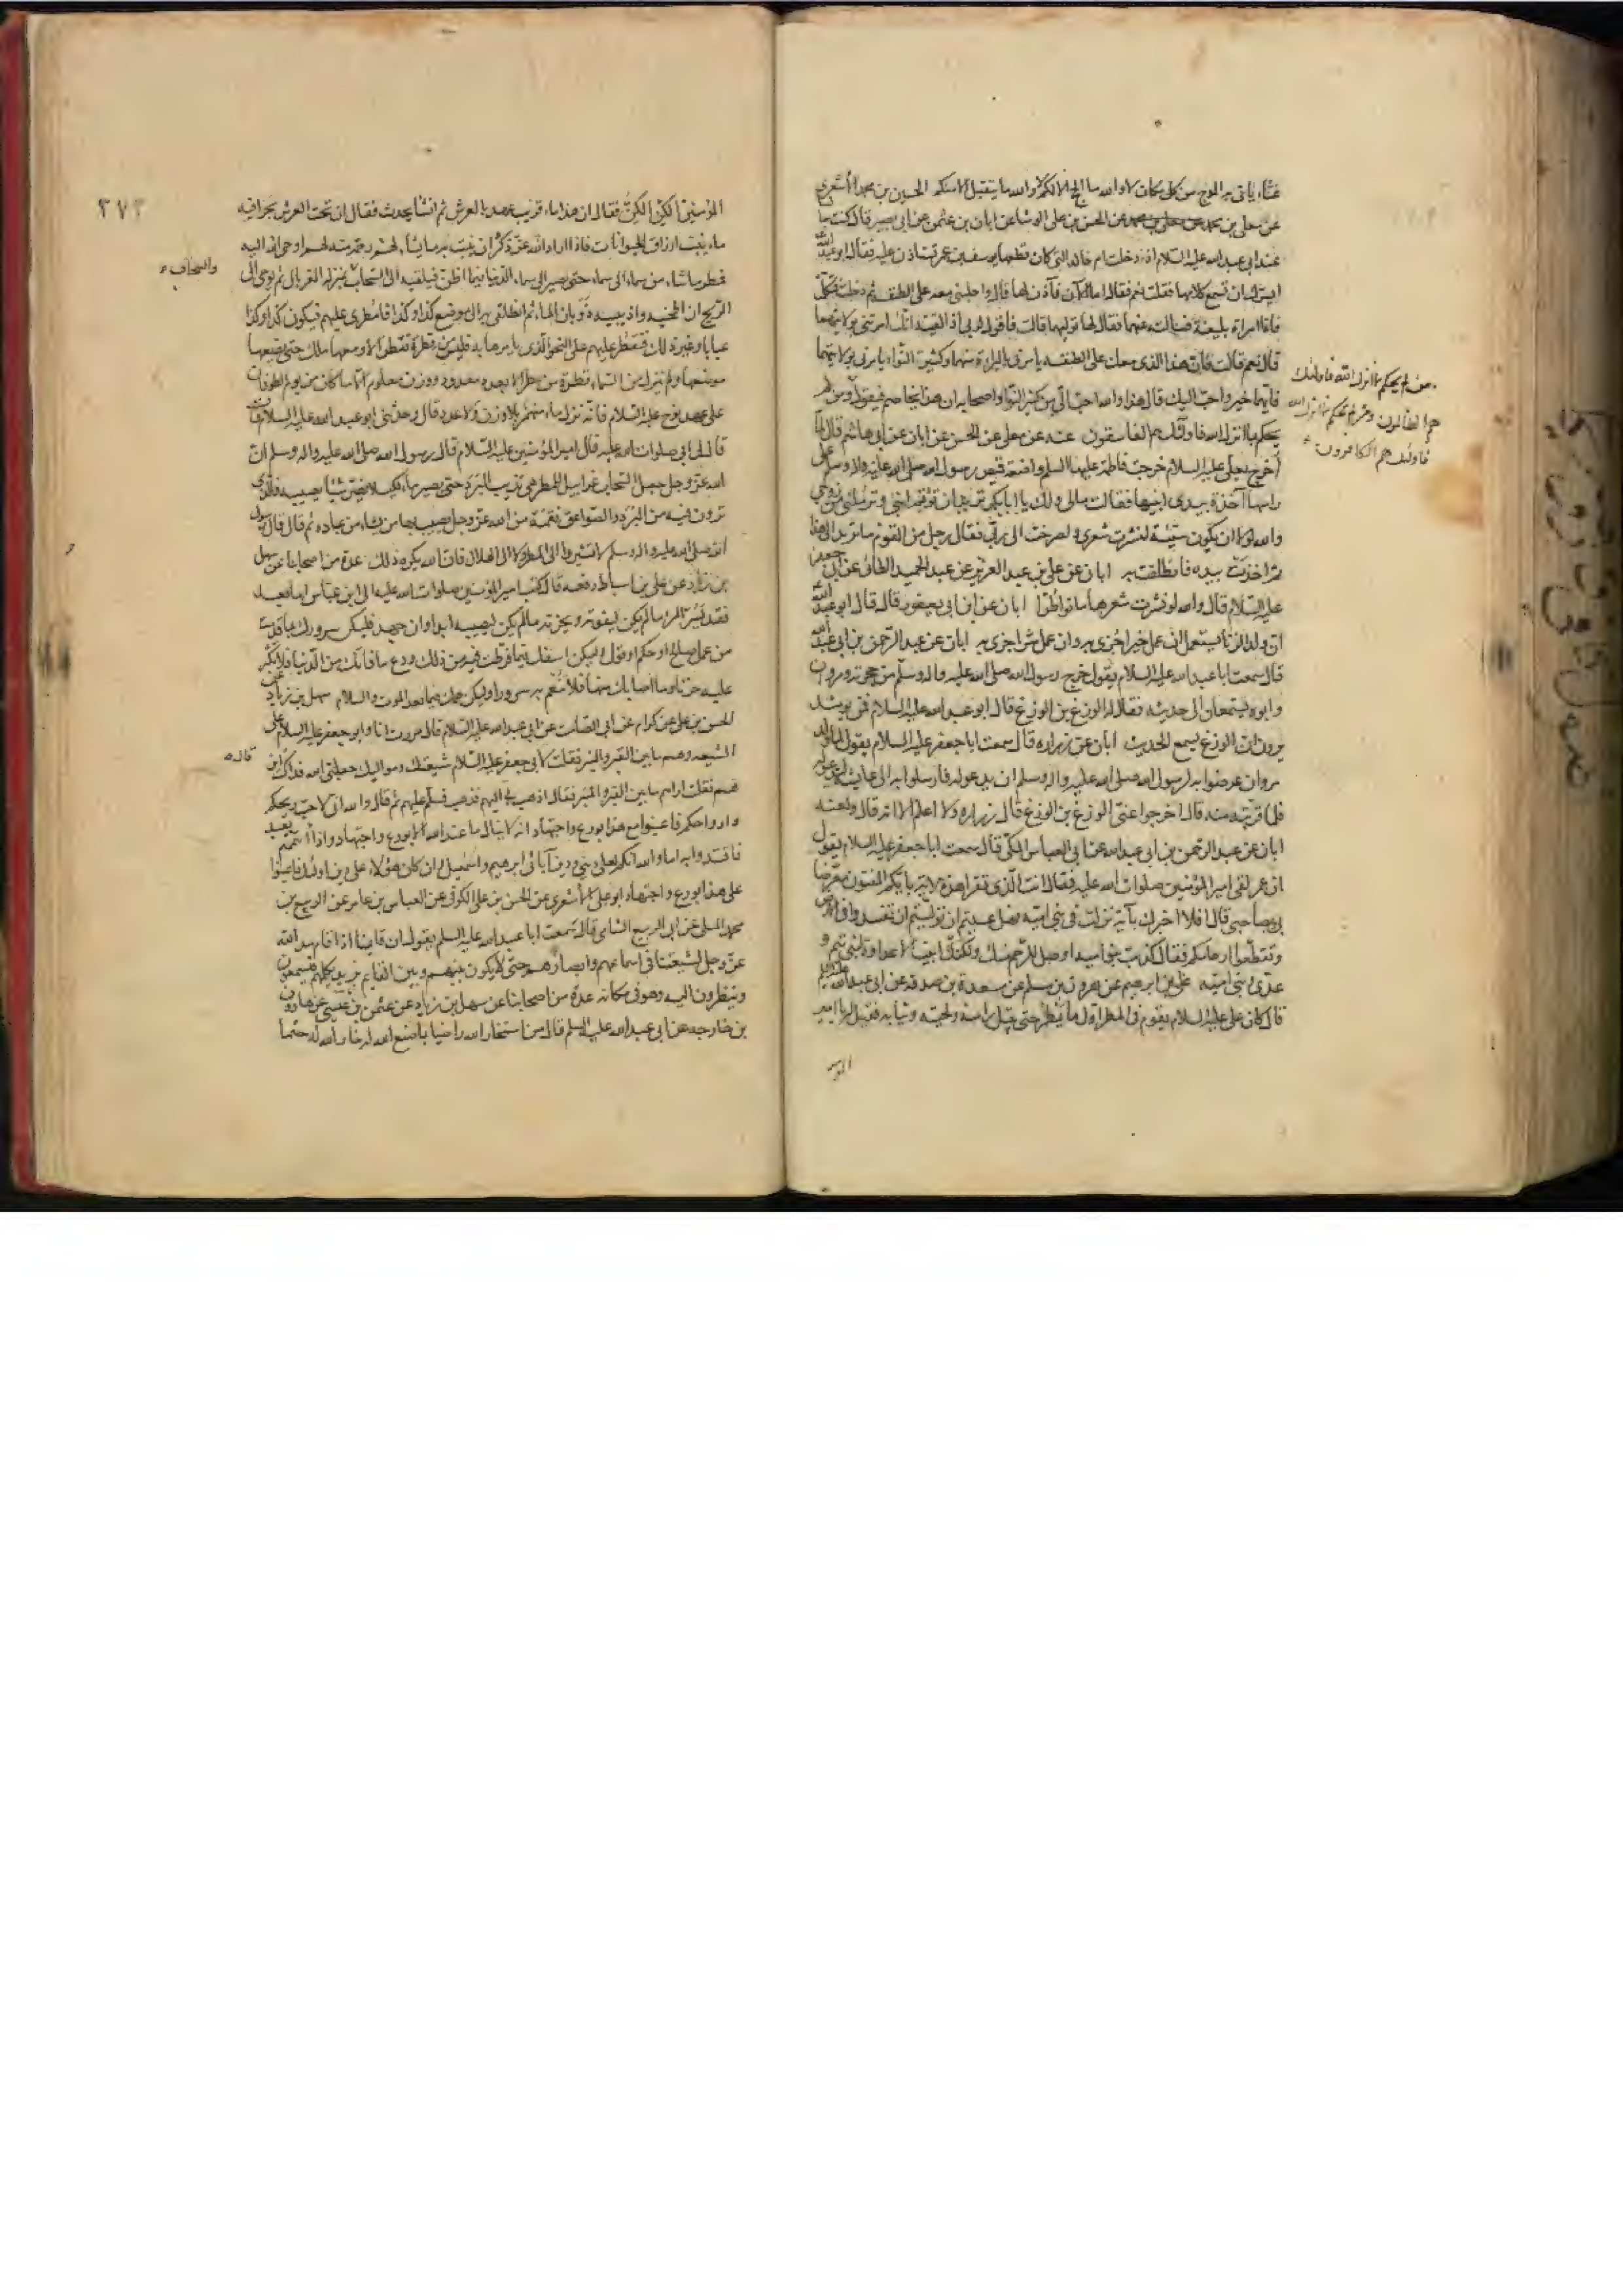 غثاء ياتى به الموج من كل مكان لا والله ما الحج الا لكم لا والله ما يتقبل الا منكم الحسين بن محمد الأشعرى
عن معلى بن محمد عن الحسن بن على الوشا عن ابان بن عثمن عن ابى بصير قال كنت جا
عند ابى عبد الله عليه السلام اذ دخلت ام خالد التى كان قطعها يوسف بن عمر تستاذن عليه فقال ابو عبد الله
ايسرك ان تسمع كلامها فقلت نعم فقال اما الآن فأذن لها قال واجلسنى معه على الطنفسه ثم دخلت فتكلمت
فاذا امراة بليغة فسالته عنهما فقال لها توليهما قالت فاقول لربى اذا لقيته انك امرتنى بولايتهما
قال نعم قالت فان هذا الذى معك على الطنفسه يامرنى بالبراءة منهما وكثير النوا يامرنى بولايتهما
فايهما خير واحب اليك قال هذا والله احب الى من كثير النوا واصحابه ان هذا يخاصم فيقول ومن لم
يحكم بما انزل الله فاولئك هم الفاسقون عنه عن معلى عن الحسن عن ابان عن ابى هاشم قال لما
أخرج بعلى عليه السلام خرجت فاطمة عليها السلم واضعة قميص رسول الله صلى الله عليه واله وسلم على
راسها آخذة بيدى ابنيها فقالت مالى ولك يا ابا بكر تريد ان توتم ابنى وترملنى من زوجى
والله لولا ان يكون سيئة لنشرت شعرى ولصرخت الى ربى فقال رجل من القوم ما تريد الى هذا
ثم اخذت بيده فانطلقت به ابان عن على بن عبد العزيز عن عبد الحميد الطائى عن ابى جعفر
عليه السلام قال والله لو نشرت شعرها ماتوا طرّا ابان عن ابن ابى يعفور قال قال ابو عبد الله
ان ولد الزنا يستعمل ان عمل خيرا جزى به وان عمل شرا جزى به ابان عن عبد الرحمن بن ابى عبد الله
قال سمعت ابا عبد الله عليه السلام يقول خرج رسول الله صلى الله عليه واله وسلم من حجرته ومروان
وابوه يستمعان الى حديثه فقال له الوزغ بن الوزغ قال ابو عبد الله عليه السلام فمن يومئذ
يرون ان الوزغ يسمع الحديث ابان عن زراره قال سمعت ابا جعفر عليه السلام يقول لما ولد
مروان عرضوا به لرسول الله صلى الله عليه واله وسلم ان يدعو له فارسلوا به الى عايشة ليدعو له
فلما قربته منه قال اخرجوا عنى الوزغ بن الوزغ قال زراره ولا اعلم الا انه قال ولعنه
ابان عن عبد الرحمن بن ابى عبد الله عن ابى العباس المكى قال سمعت ابا جعفر عليه السلام يقول
ان عمر لقى امير المؤمنين صلوات الله عليه فقال انت الذى تقرا هذه الاية بايكم المفتون تعرضا
بى وبصاحبى قال افلا اخبرك بآية نزلت فى بنى اميه فهل عسيتم ان توليتم ان تفسدوا فى الارض
وتقطعوا ارحامكم فقال كذبت بنو اميه اوصل للرحم منك ولكنك ابيت الا عداوة لبنى تيم و
عدى وبنى اميه على بن ابرهيم عن هرون بن مسلم عن مسعدة بن صدقه عن ابى عبد الله عليه السلم
قال كان على عليه السلام يقوم فى المطر اول ما يمطر حتى يبتل راسه ولحيته وثيابه فقيل له يا امير
المو
ومن لم يحكم بما انزل الله فاولئك
هم الظالمون ومن لم يحكم بما انزل الله
فاولئك هم الكافرون
٢٧٣
المؤمنين الكن الكن فقال ان هذا ماء قريب عهد بالعرش ثم انشا يحدث فقال ان تحت العرش بحرا فيه
ماء ينبت ارزاق الحيوانات فاذا اراد الله عز ذكره ان ينبت به ما يشاء لهم رحمة منه لهم اوحى الله اليه
فمطر ما شاء من سماء الى سماء حتى يصير الى سماء الدنيا فيما اظن فيلقيه الى السحاب بمنزله الغربال ثم يوحى الى
الريح ان اطحنيه واذيبيه ذوبان الماء ثم انطلقى به الى موضع كذا وكذا فامطرى عليهم فيكون كذا وكذا
عبابا وغير ذلك فتقطر عليهم على النحو الذى يامرها به فليس من قطرة تقطر الا ومعها ملك حتى يضعها
موضعها ولم ينزل من السماء قطرة من مطر الا بعدد معدود ووزن معلوم الا ما كان من يوم الطوفان
على عهد نوح عليه السلام فانه نزل ماء منهمر بلا وزن ولا عدد قال وحدثنى ابو عبد الله عليه السلام قال
قال لى ابى صلوات الله عليه قال امير المؤمنين عليه السلام قال رسول الله صلى الله عليه واله وسلم ان
الله عز وجل جعل السحاب غرابيل للمطر هى تذيب البرد حتى يصير ماء لكيلا يضر شيئا يصيبه فالذى
ترون فيه من البرد والصواعق نقمة من الله عز وجل يصيب بها من يشاء من عباده ثم قال قال رسول
الله صلى الله عليه واله وسلم لا تشيروا الى المطر ولا الى الهلال فان الله يكره ذلك عدة من اصحابنا عن سهل
بن زياد عن على بن اسباط رفعه قال كتب امير المؤمنين صلوات الله عليه الى ابن عباس اما بعد
فقد يسر المرء ما لم يكن ليفوته ويحزنه ما لم يكن ليصيبه ابدا وان جهد فليكن سرورك بما قدمت
من عمل صالح او حكم او قول وليكن اسفك فيما فرطت فيه من ذلك ودع ما فاتك من الدنيا فلا تكثر
عليه حزنا وما اصابك منها فلا تنعم به سرورا وليكن همك فيما بعد الموت والسلام سهل بن زياد عن
الحسن بن على عن كرام عن ابى الصامت عن ابى عبد الله عليه السلام قال مررت انا وابو جعفر عليه السلام على
الشيعه وهم ما بين القبر والمنبر فقلت لابى جعفر عليه السلام شيعتك ومواليك جعلنى الله فداك اين
هم فقلت اراهم ما بين القبر والمنبر فقال اذهب بى اليهم فذهب فسلم عليهم ثم قال والله انى لاحب ريحكم
وارواحكم فاعينوا مع هذا بورع واجتهاد انه لا ينال ما عند الله الا بورع واجتهاد واذا ائتممتم بعبد
فاقتدوا به اما والله انكم لعلى دينى ودين آبائى ابرهيم واسمعيل وان كان هؤلاء على دين اولئك فاعينوا
على هذا بورع واجتهاد ابو على الأشعرى عن الحسن بن على الكوفى عن العباس بن عامر عن الربيع بن
محمد المسلى عن ابى الربيع الشامى قال سمعت ابا عبد الله عليه السلم يقول ان قايمنا اذا قام مد الله
عز وجل لشيعتنا فى اسماعهم وابصارهم حتى لا يكون بينهم وبين القايم بريد يكلمهم فيسمعون
وينظرون اليه وهو فى مكانه عدة من اصحابنا عن سهل بن زياد عن عثمن بن عيسى عن هارون
بن خارجه عن ابى عبد الله عليه السلم قال من استخار الله راضيا بما صنع الله له خار الله له حتما
والسحاب
قال